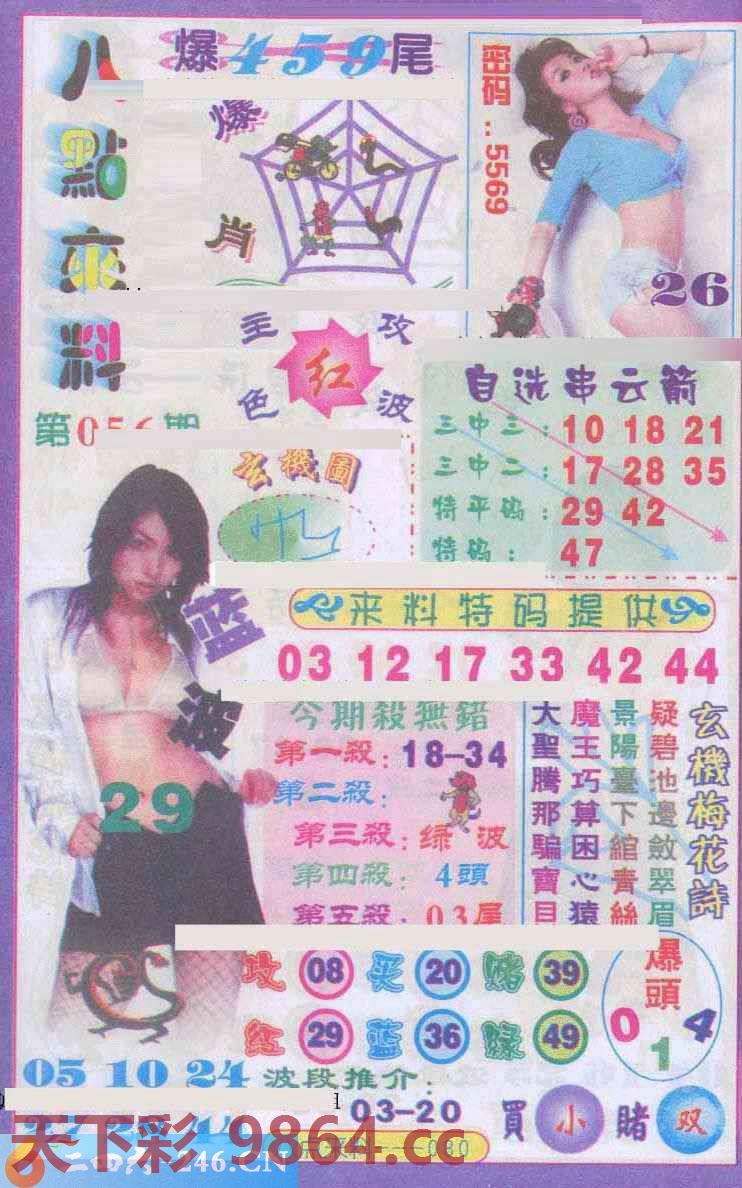 八點來料
爆459尾
爆肖
密码：5569
26
主攻
红
色波
第056期
玄機圖
自选串云箭
三中三：10 18 21
三中二：17 28 35
特平码：29 42
特码：47
来料特码提供
03 12 17 33 42 44
蓝波
29
今期殺無錯
第一殺：18-34
第二殺：
第三殺：绿波
第四殺：4頭
第五殺：03尾
玄機梅花詩
疑碧池邊斂翠眉
景陽臺下綰青絲
魔王巧算困心猿
大聖騰那騙寶貝
攻 08 买 20 赌 39
红 29 蓝 36 绿 49
爆頭
0 1 4
05 10 24
波段推介：
03-20
買小賭双
天下彩.9864.cc
246.CN